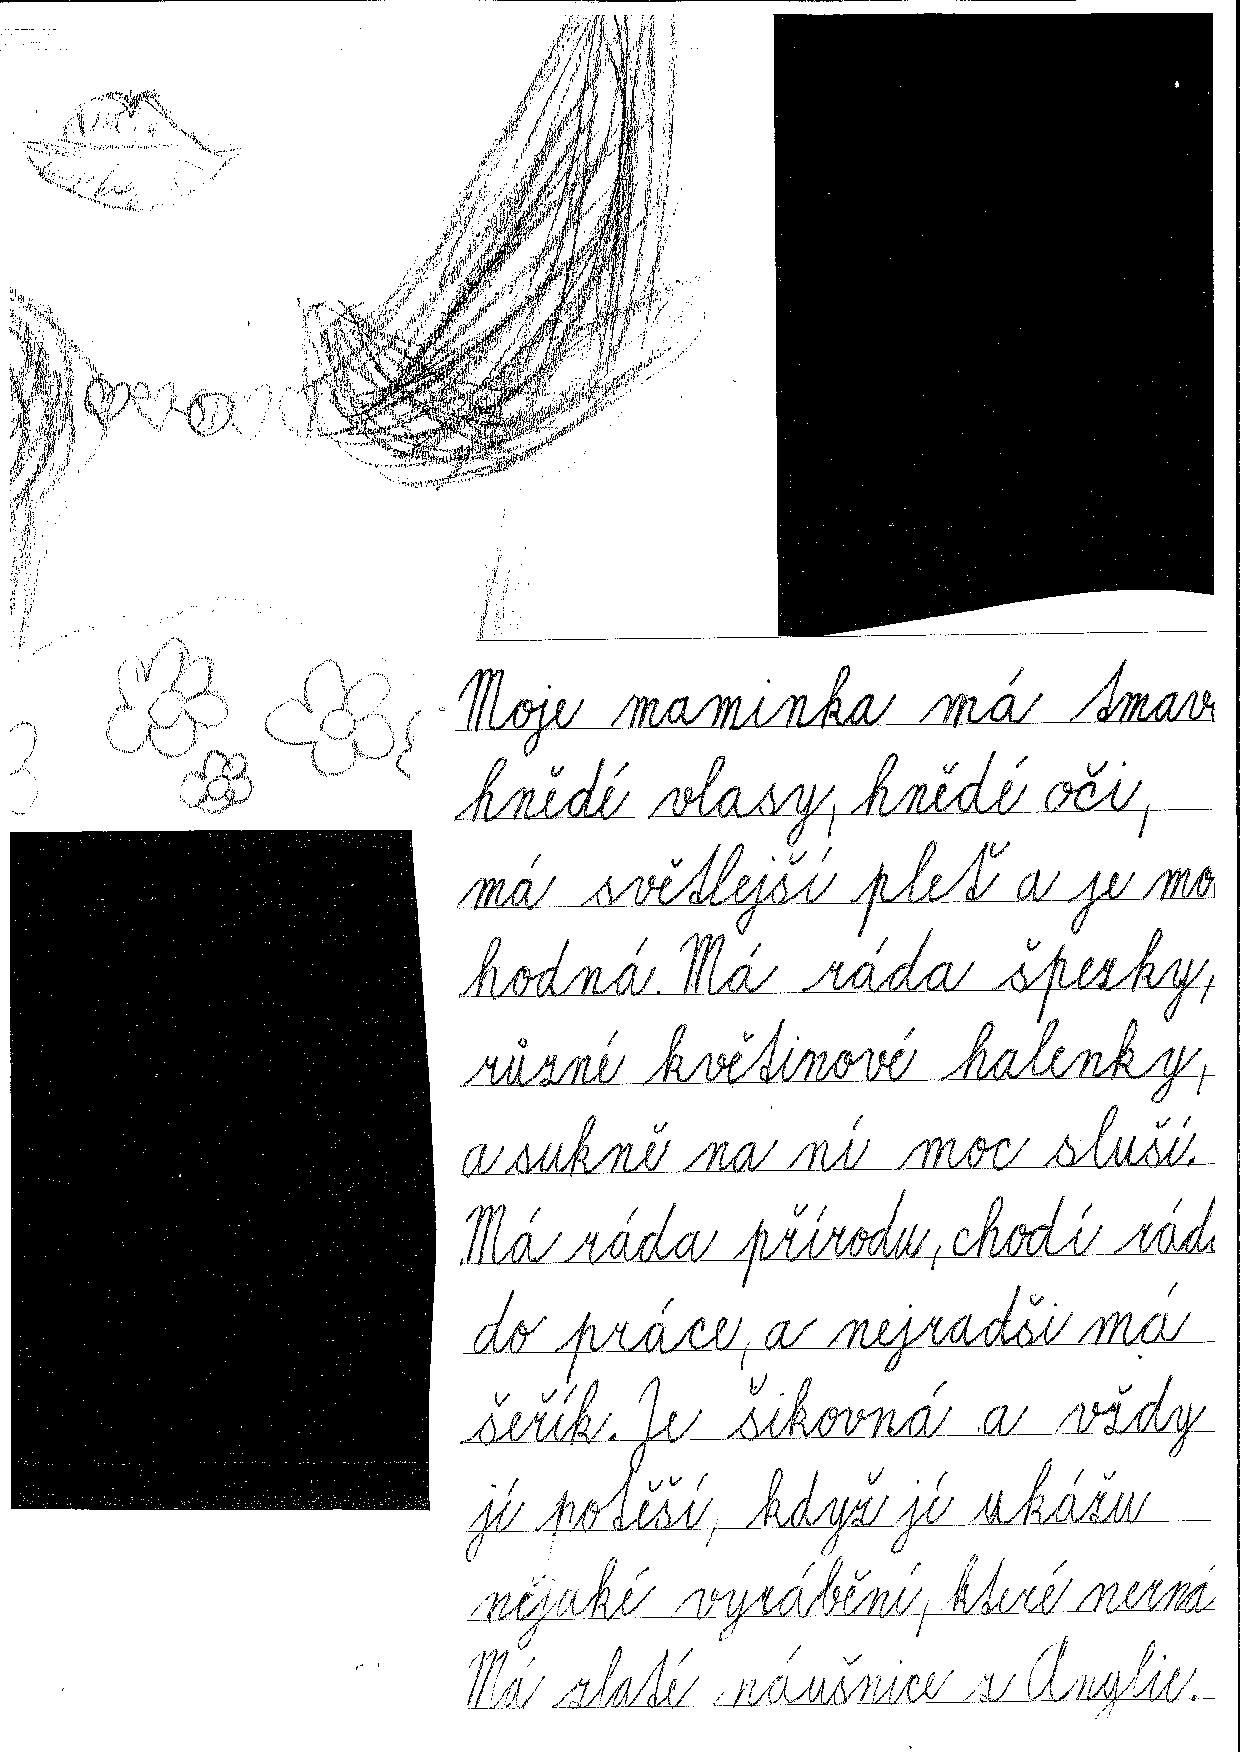 Moje maminka má tmav
hnědé vlasy, hnědé oči,
má světlejší pleť a je mo
hodná. Má ráda šperky,
různé květinové halenky,
a sukně na ní moc sluší.
Má ráda přírodu, chodí rád
do práce, a nejradši má
šeřík. Je šikovná a vždy
jí potěší, když jí ukážu
nějaké vyrábění, které nezná
Má zlaté náušnice z Anglie.